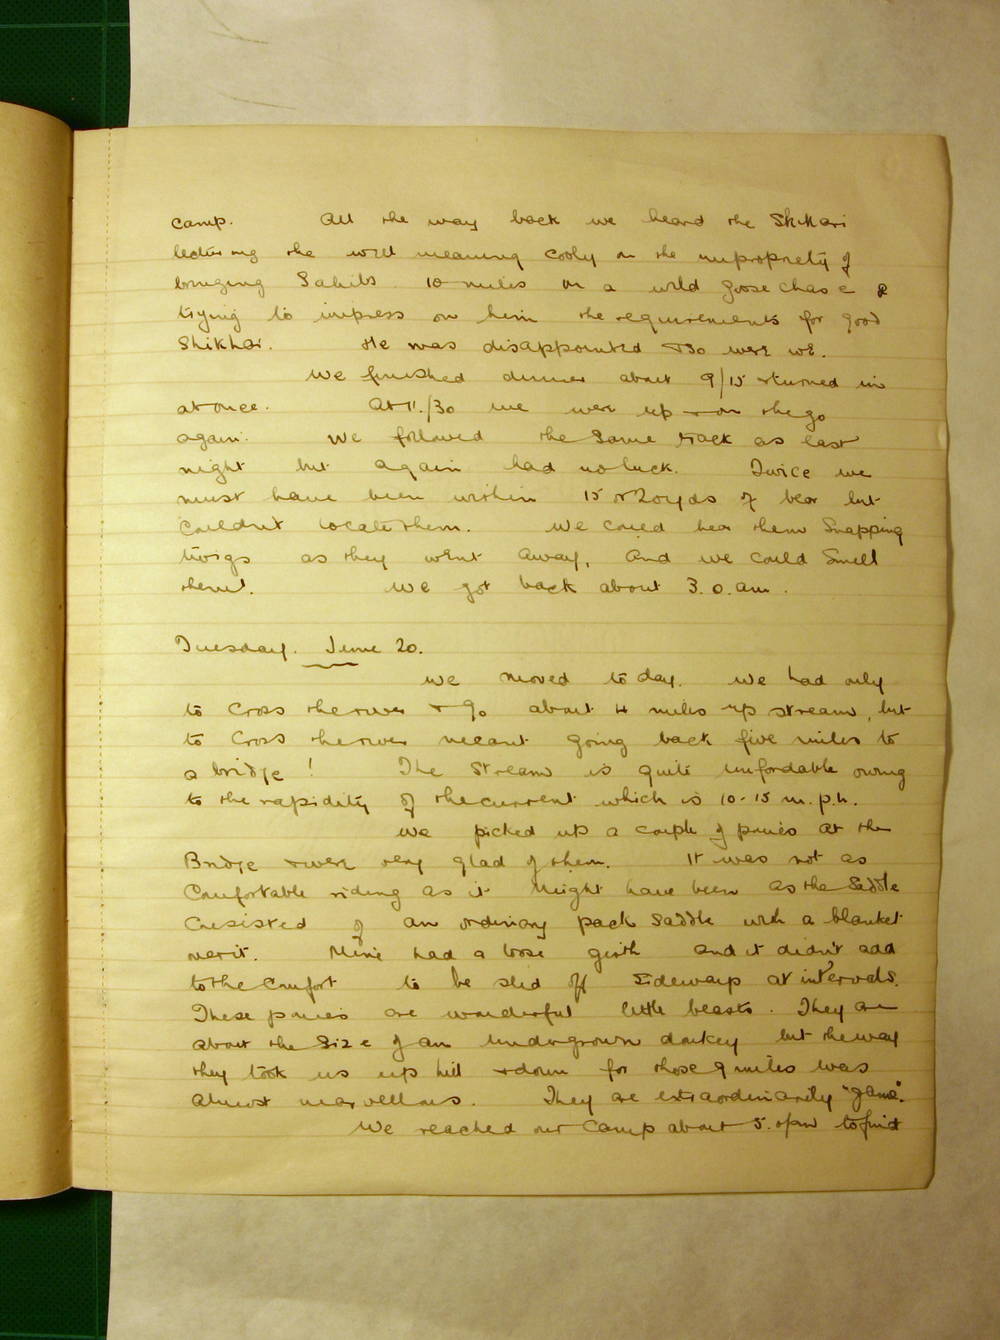 camp. All the way back we heard the Shikari
lecturing the well meaning cooly on the impropriety of
bringing Sahibs 10 miles on a wild goose chase &
trying to impress on him the requirements for good
Shikhar. He was disappointed & so were we.
We finished dinner about 9/15 & turned in
at once. At 11/30 we were up & on the go
again. We followed the same track as last
night but again had no luck. Twice we
must have been within 15 or 20 yds of bear but
couldn't locate them. We could hear them snapping
twigs as they went away, and we could smell
them!. We got back about 3.0. am.
Tuesday. June 20.
We moved to day. We had only
to cross the river & go about 4 miles up stream, but
to cross the river meant going back five miles to
a bridge! The stream is quite unfordable owing
to the rapidity of the current which is 10-15 m.p.h.
We picked up a couple of ponies at the
Bridge & were very glad of them. It was not as
comfortable riding as it might have been as the saddle
consisted of an ordinary pack saddle with a blanket
over it. Mine had a loose girth and it didn't add
to the comfort to be slid off sideways at intervals.
These ponies are wonderful little beasts. They are
about the size of an undergrown donkey but the way
they took us up hill & down for those 9 miles was
almost marvellous. They are extraordinarily "game".
We reached our camp about 5. pm to find